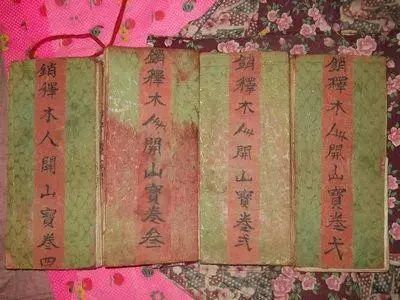 銷釋木人開山寶卷弌
銷釋木人開山寶卷弍
銷釋木人開山寶卷叁
銷釋木人開山寶卷四